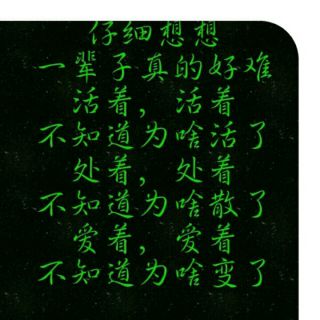 仔细想想
一辈子真的好难
活着，活着
不知道为啥活了
处着，处着
不知道为啥散了
爱着，爱着
不知道为啥变了